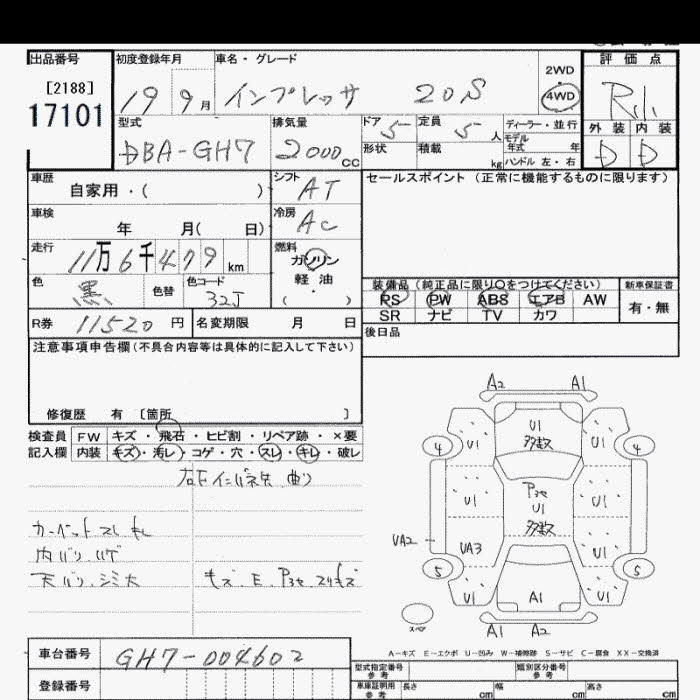 出品番号 初度登録年月 車名・グレード 評価点
[2188]
17101
19 9月 インプレッサ 20S 2WD
4WD
型式 排気量 ドア 定員 ディーラー・並行 外装 内装
DBA-GH7 2000cc 5 5人 モデル年式 年 D D
形状 積載 kg ハンドル 左・右
車歴 シフト セールスポイント (正常に機能するものに限ります)
自家用・( ) AT
車検 冷房
年 月( 日) AC
走行 燃料
11万6千479km ガソリン
軽油
( ・ )
色 色替 色コード
黒 32J
装備品 (純正品に限り○をつけてください) 新車保証書
PS PW ABS エアB AW 有・無
SR ナビ TV カワ
R券 11520円 名変期限 月 日
後日品
注意事項申告欄(不具合内容等は具体的に記入して下さい)
修復歴 有 [箇所 ]
検査員 FW キズ・飛石・ヒビ割・リペア跡・×要
記入欄 内装 キズ・汚レ・コゲ・穴・スレ・キレ・破レ
カーペットスレ キレ
内バリ ハゲ
天バリ シミ大 キズ、E、P3セ スリキズ
A2 A1
U1 U1 U1
多数
4 4
U1 P3セ U1
U1
多数
VA2 UA3 U1
5 5
U1 A1 U1
スペア A1 A2
A-キズ E-エクボ U-凹み W-補修跡 S-サビ C-腐食 XX-交換済
車台番号 GH7-004602
登録番号
型式指定番号 参考 類別区分番号 参考
車庫証明用 参考 長さ cm 幅 cm 高さ cm